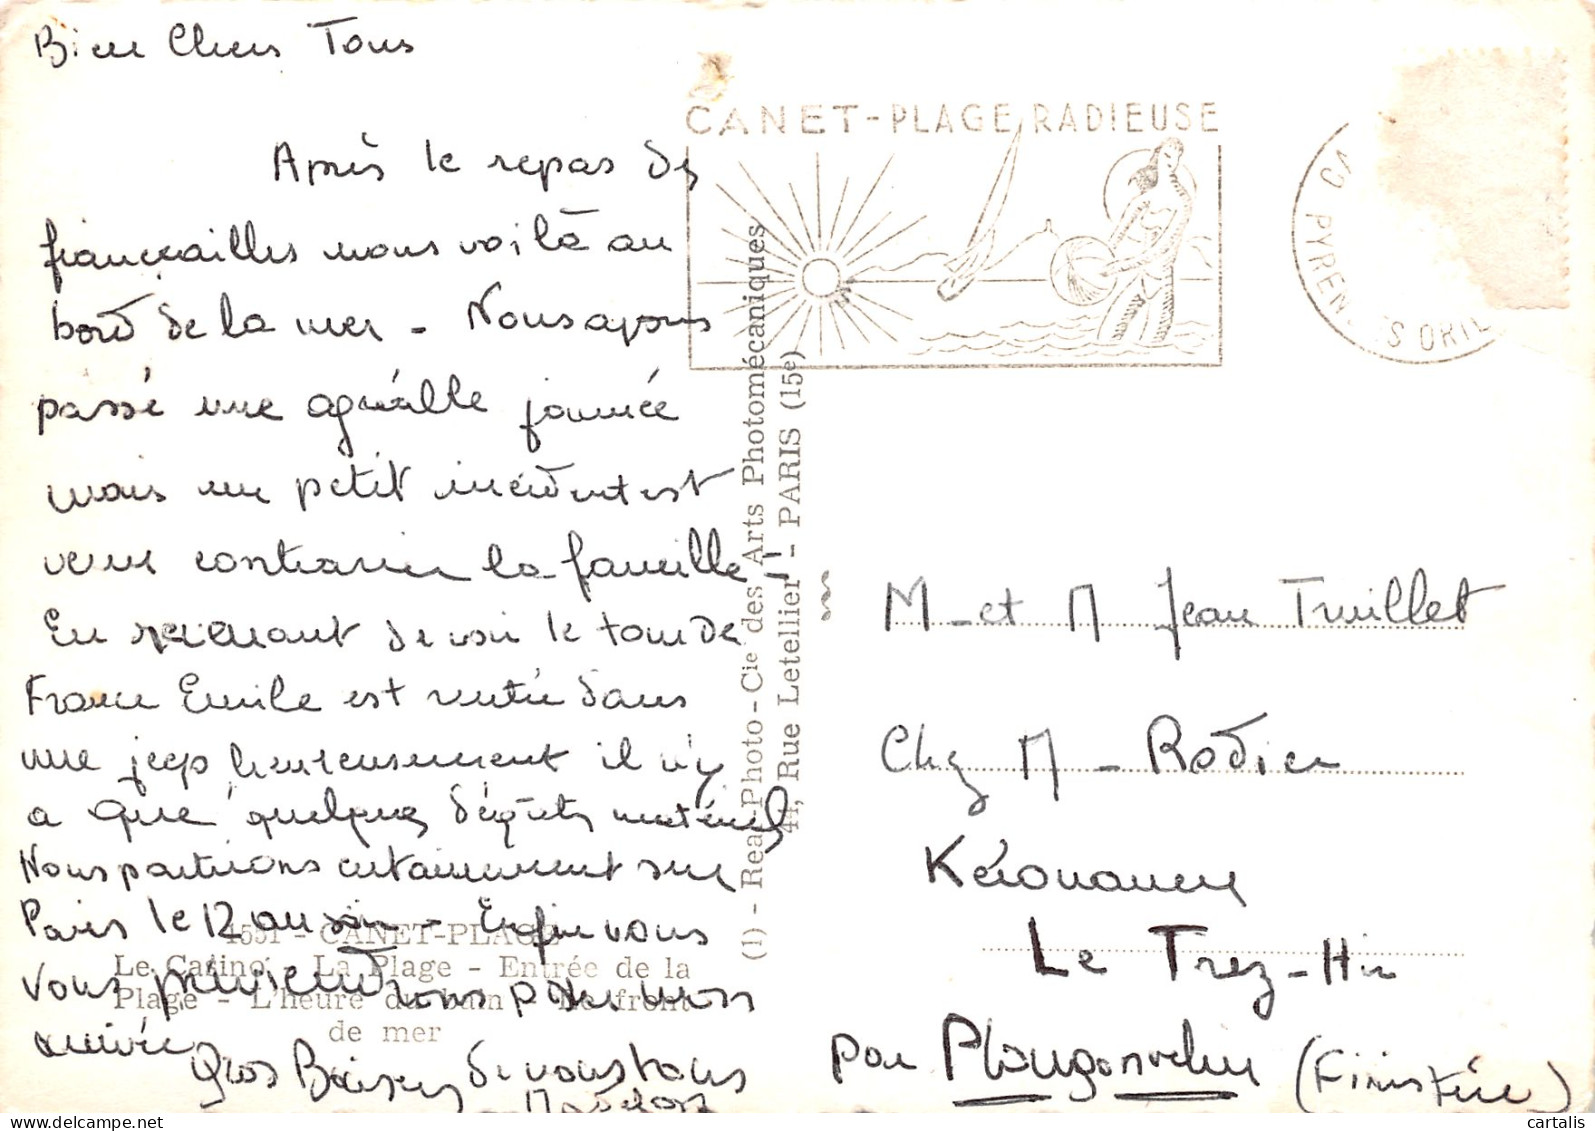 Bien Chers Tous
Après le repas des
fiançailles nous voilà au
bord de la mer - Nous avons
passé une agréable journée
mais un petit incident est
venu contrarier la famille -
En revenant de voir le tour de
France Emile est rentré dans
une jeep heureusement il n'y
a que quelques dégâts matériels
Nous partirions certainement sur
Paris le 12 au soir - Enfin nous
vous préviendrons pour notre
arrivée
Gros Baisers de vous tous
CANET-PLAGE RADIEUSE
PYRENEES ORIE
4551 - CANET-PLAGE
Le Casino - La Plage - Entrée de la
Plage - L'heure du bain - Le front
de mer
(1) - Real-Photo - Cie des Arts Photomécaniques
44, Rue Letellier - PARIS (15e)
M - et M Jean Truillet
Chez M - Rodier
Le Trez-Hir
par Plougonvelin (Finistère)
www.delcampe.net
cartalis